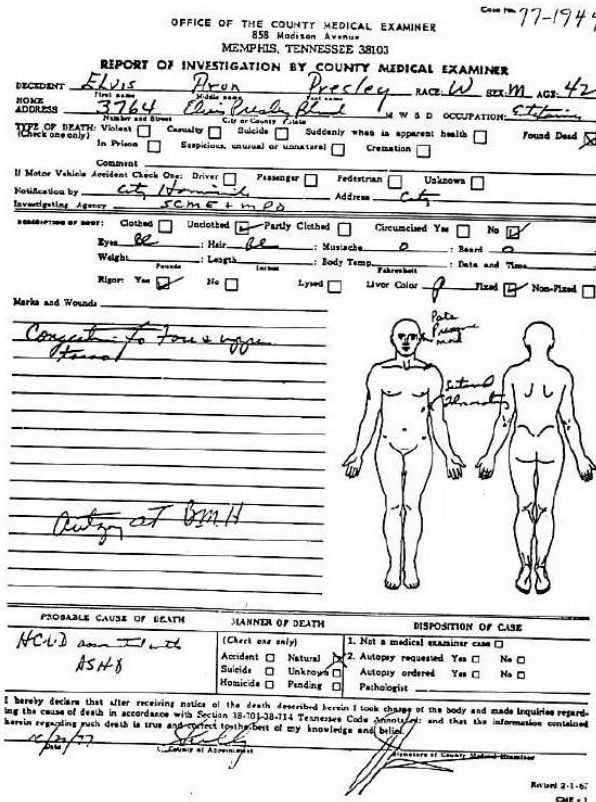 Case No. 77-1944
OFFICE OF THE COUNTY MEDICAL EXAMINER
858 Madison Avenue
MEMPHIS, TENNESSEE 38103
REPORT OF INVESTIGATION BY COUNTY MEDICAL EXAMINER
DECEDENT Elvis Aron Presley RACE: W SEX: M AGE: 42
First name Middle name Last name
HOME ADDRESS 3764 Elvis Presley Blvd M W S D OCCUPATION:
Number and Street City or County State
TYPE OF DEATH: Violent Casualty Suicide Suddenly when in apparent health Found Dead
(Check one only) In Prison Suspicious, unusual or unnatural Cremation
Comment
If Motor Vehicle Accident Check One: Driver Passenger Pedestrian Unknown
Notification by City Homicide Address City
Investigating Agency SCME + MPD
DESCRIPTION OF BODY: Clothed Unclothed Partly Clothed Circumcised Yes No
Eyes Bl : Hair Bl : Mustache 0 : Beard 0
Weight : Length : Body Temp. : Date and Time
Pounds Inches Fahrenheit
Rigor: Yes No Lysed Livor Color P Fixed Non-Fixed
Marks and Wounds
Pale
Pressure
mark
Congestion to face & upper
torso
Autopsy at BMH
PROBABLE CAUSE OF DEATH MANNER OF DEATH DISPOSITION OF CASE
HCVD associated with
ASHD
(Check one only)
Accident Natural
Suicide Unknown
Homicide Pending
1. Not a medical examiner case
2. Autopsy requested Yes No
Autopsy ordered Yes No
Pathologist
I hereby declare that after receiving notice of the death described herein I took charge of the body and made inquiries regard-
ing the cause of death in accordance with Section 38-701-38-714 Tennessee Code Annotated; and that the information contained
herein regarding such death is true and correct to the best of my knowledge and belief.
Date County of Appointment Signature of County Medical Examiner
Revised 2-1-67
CME - 1